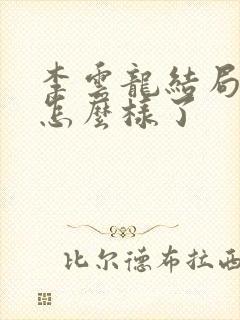 李雲龍結局
怎麼樣了
比尔德布拉西